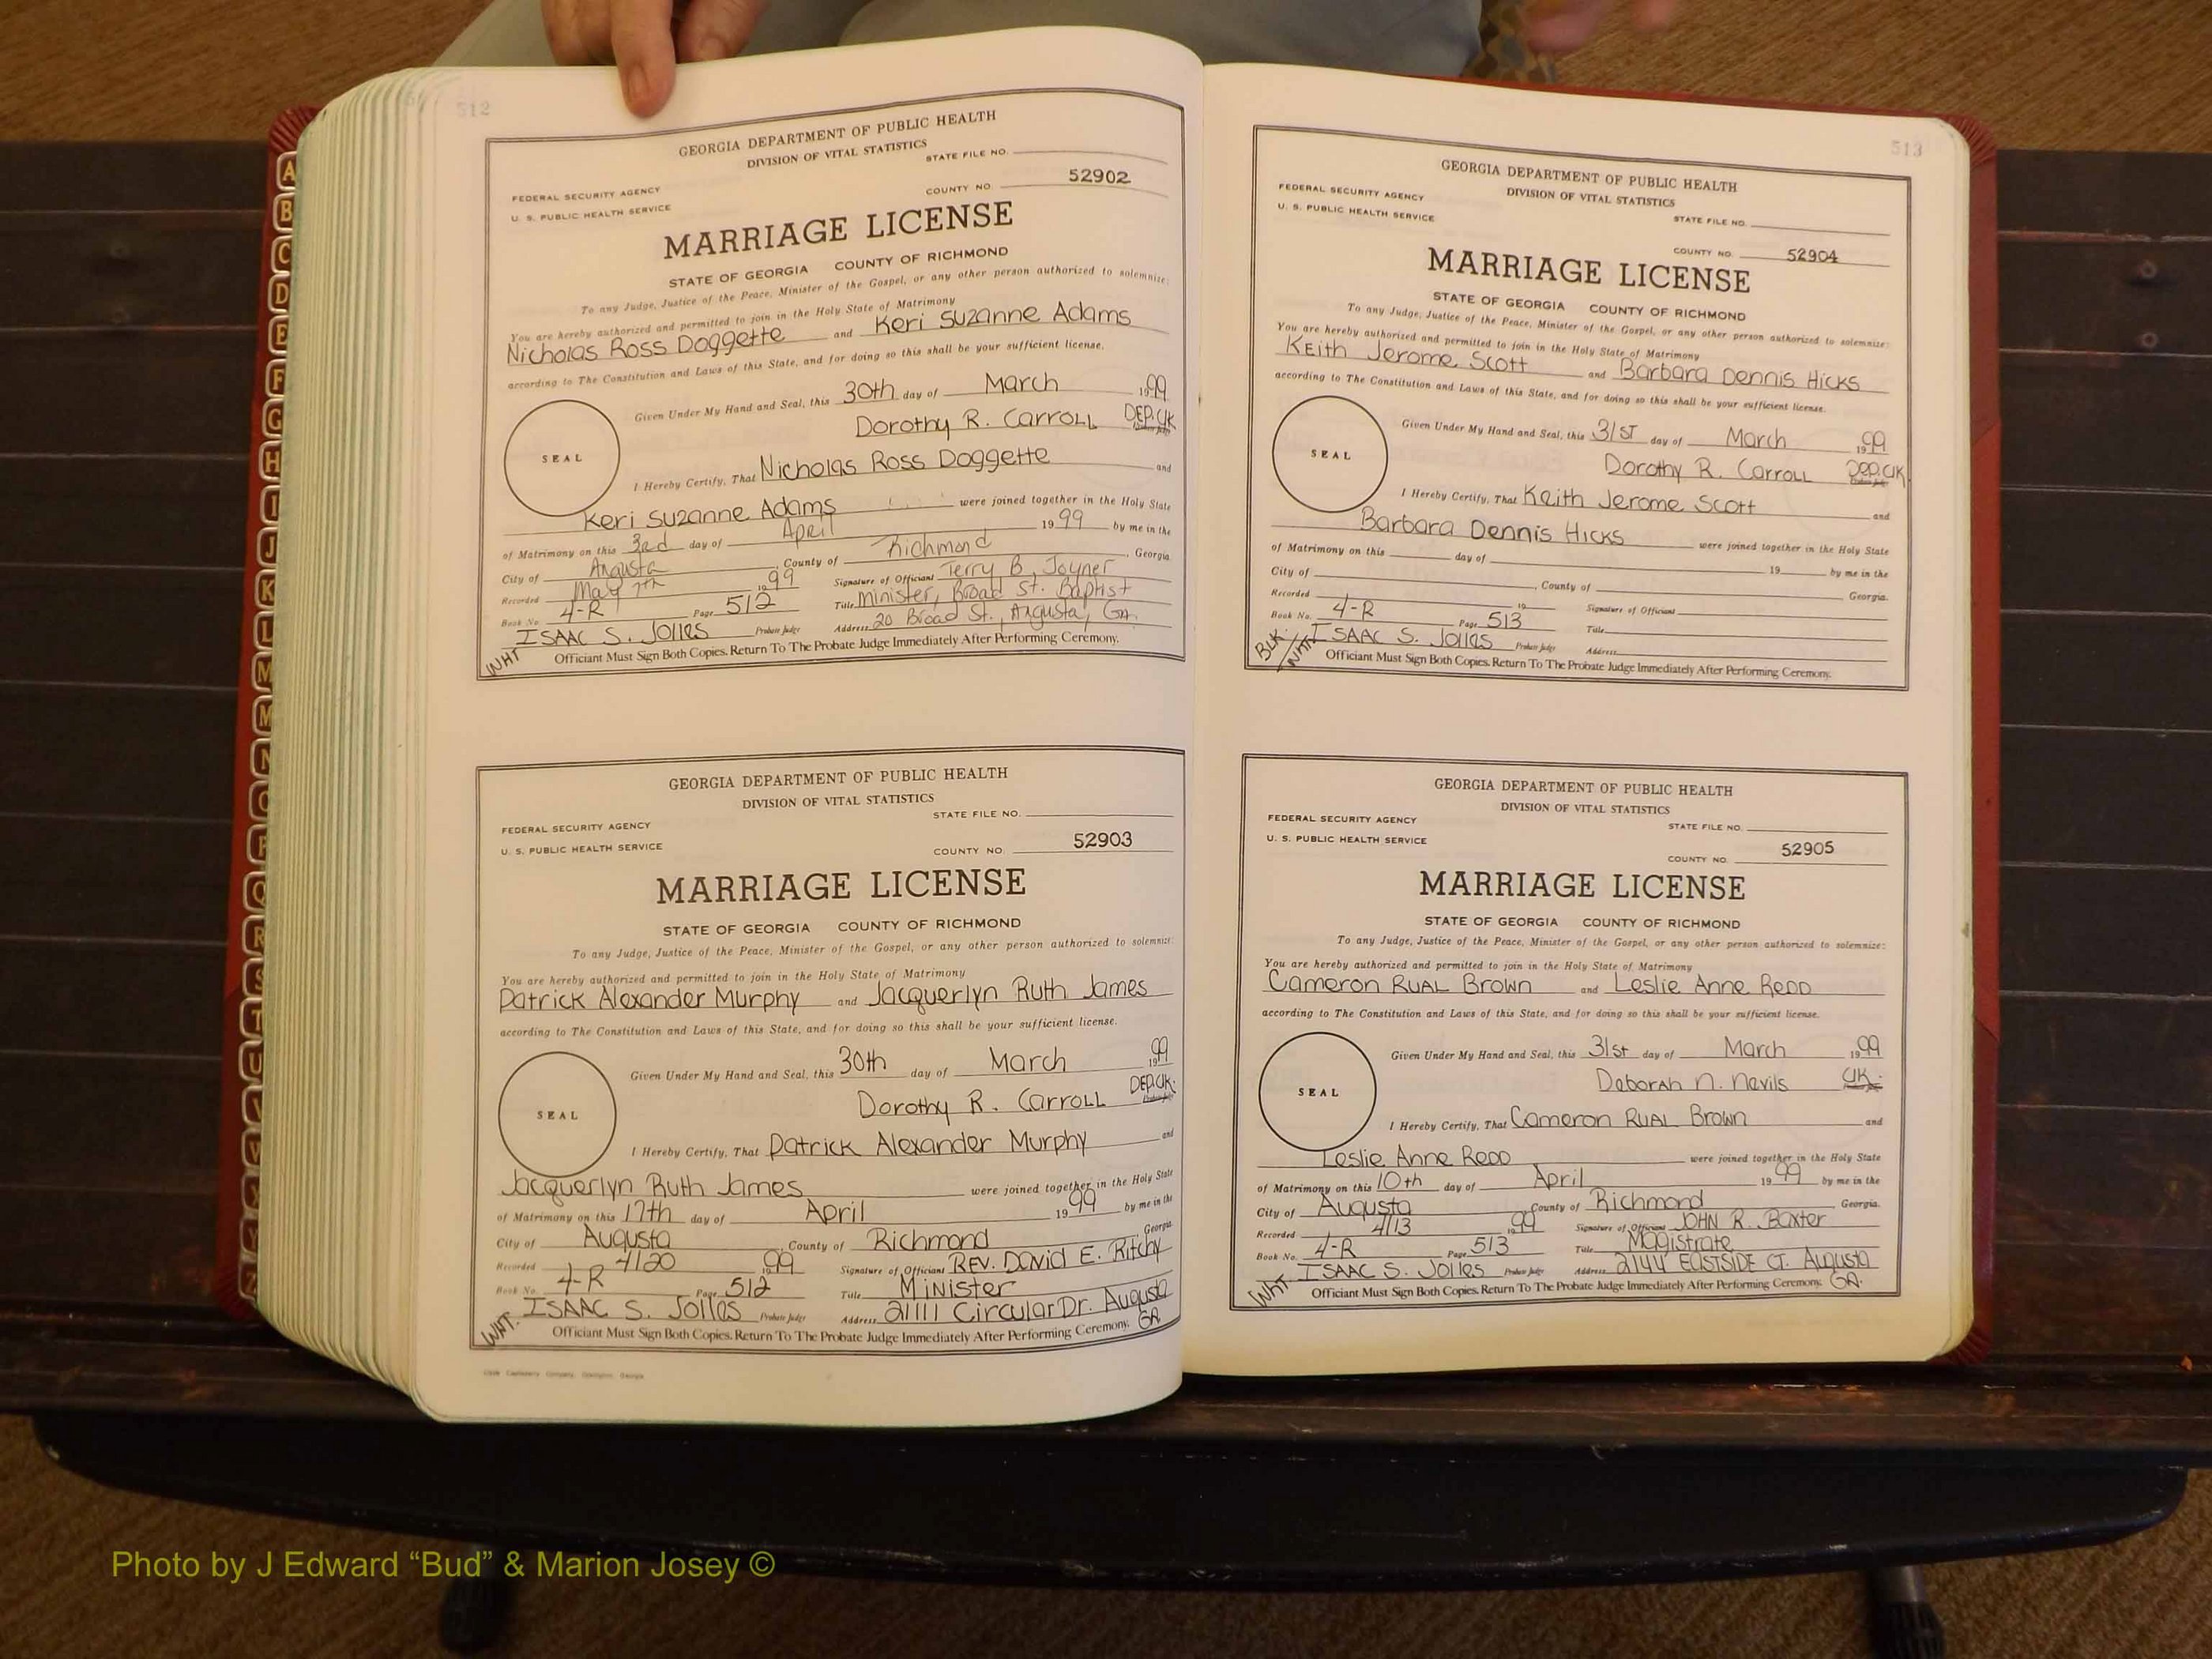 512
GEORGIA DEPARTMENT OF PUBLIC HEALTH
DIVISION OF VITAL STATISTICS
STATE FILE NO.
FEDERAL SECURITY AGENCY
COUNTY NO. 52902
U. S. PUBLIC HEALTH SERVICE
MARRIAGE LICENSE
STATE OF GEORGIA COUNTY OF RICHMOND
To any Judge, Justice of the Peace, Minister of the Gospel, or any other person authorized to solemnize:
You are hereby authorized and permitted to join in the Holy State of Matrimony
Nicholas Ross Doggette and Keri Suzanne Adams
according to The Constitution and Laws of this State, and for doing so this shall be your sufficient license.
Given Under My Hand and Seal, this 30th day of March 1999
Dorothy R. Carroll DEP.CLK
SEAL
I Hereby Certify, That Nicholas Ross Doggette and
Keri Suzanne Adams were joined together in the Holy State
of Matrimony on this 3rd day of April 1999 by me in the
City of Augusta, County of Richmond, Georgia.
Recorded May 7th 1999 Signature of Officiant Terry B. Joyner
Book No. 4-R Page 512 Title Minister, Broad St. Baptist
ISAAC S. Jolles Probate Judge Address 20 Broad St., Augusta, GA.
WHT
Officiant Must Sign Both Copies. Return To The Probate Judge Immediately After Performing Ceremony.
GEORGIA DEPARTMENT OF PUBLIC HEALTH
DIVISION OF VITAL STATISTICS
STATE FILE NO.
FEDERAL SECURITY AGENCY
U. S. PUBLIC HEALTH SERVICE
COUNTY NO. 52903
MARRIAGE LICENSE
STATE OF GEORGIA COUNTY OF RICHMOND
To any Judge, Justice of the Peace, Minister of the Gospel, or any other person authorized to solemnize:
You are hereby authorized and permitted to join in the Holy State of Matrimony
Patrick Alexander Murphy and Jacquerlyn Ruth James
according to The Constitution and Laws of this State, and for doing so this shall be your sufficient license.
Given Under My Hand and Seal, this 30th day of March 1999
Dorothy R. Carroll DEP.CLK.
SEAL
I Hereby Certify, That Patrick Alexander Murphy and
Jacquerlyn Ruth James were joined together in the Holy State
of Matrimony on this 17th day of April 1999 by me in the
City of Augusta, County of Richmond Georgia.
Recorded 4/20 1999 Signature of Officiant REV. David E. Ritchy
Book No. 4-R Page 512 Title Minister
ISAAC S. Jolles Probate Judge Address 21111 Circular Dr. Augusta GA
WHT.
Officiant Must Sign Both Copies. Return To The Probate Judge Immediately After Performing Ceremony.
513
GEORGIA DEPARTMENT OF PUBLIC HEALTH
DIVISION OF VITAL STATISTICS
FEDERAL SECURITY AGENCY
U. S. PUBLIC HEALTH SERVICE
STATE FILE NO.
COUNTY NO. 52904
MARRIAGE LICENSE
STATE OF GEORGIA COUNTY OF RICHMOND
To any Judge, Justice of the Peace, Minister of the Gospel, or any other person authorized to solemnize:
You are hereby authorized and permitted to join in the Holy State of Matrimony
Keith Jerome Scott and Barbara Dennis Hicks
according to The Constitution and Laws of this State, and for doing so this shall be your sufficient license.
Given Under My Hand and Seal, this 31ST day of March 1999
Dorothy R. Carroll DEP.CLK
SEAL
I Hereby Certify, That Keith Jerome Scott and
Barbara Dennis Hicks were joined together in the Holy State
of Matrimony on this day of 19 by me in the
City of , County of Georgia.
Recorded 19 Signature of Officiant
Book No. 4-R Page 513 Title
ISAAC S. Jolles Probate Judge Address
BLK./WHT.
Officiant Must Sign Both Copies. Return To The Probate Judge Immediately After Performing Ceremony.
GEORGIA DEPARTMENT OF PUBLIC HEALTH
DIVISION OF VITAL STATISTICS
FEDERAL SECURITY AGENCY
STATE FILE NO.
U. S. PUBLIC HEALTH SERVICE
COUNTY NO. 52905
MARRIAGE LICENSE
STATE OF GEORGIA COUNTY OF RICHMOND
To any Judge, Justice of the Peace, Minister of the Gospel, or any other person authorized to solemnize:
You are hereby authorized and permitted to join in the Holy State of Matrimony
Cameron RUAL Brown and Leslie Anne Redd
according to The Constitution and Laws of this State, and for doing so this shall be your sufficient license.
Given Under My Hand and Seal, this 31st day of March 1999
Deborah N. Nevils CLK.
SEAL
I Hereby Certify, That Cameron RUAL Brown and
Leslie Anne Redd were joined together in the Holy State
of Matrimony on this 10th day of April 1999 by me in the
City of Augusta, County of Richmond Georgia.
Recorded 4/13 1999 Signature of Officiant JOHN R. Baxter
Book No. 4-R Page 513 Title Magistrate
ISAAC S. Jolles Probate Judge Address 2144 EASTSIDE CT. Augusta GA.
WHT.
Officiant Must Sign Both Copies. Return To The Probate Judge Immediately After Performing Ceremony.
A
B
C
D
E
F
G
H
I
J
K
L
M
M
N
O
P
Q
R
S
T
U
V
W
X
Y
Z
Photo by J Edward “Bud” & Marion Josey ©